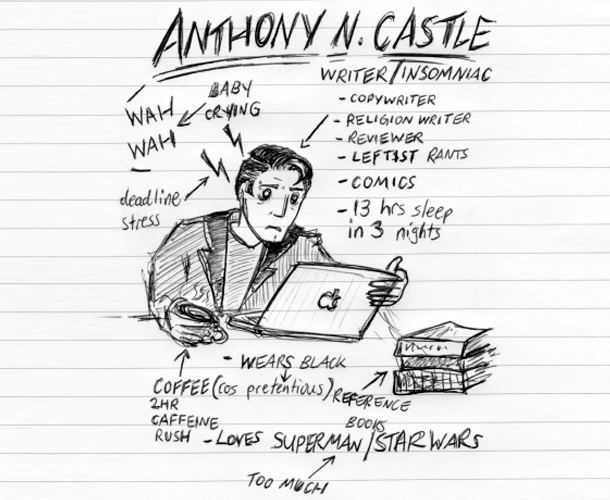 ANTHONY N. CASTLE
WRITER/INSOMNIAC
- COPYWRITER
- RELIGION WRITER
- REVIEWER
- LEFTIST RANTS
- COMICS
- 13 hrs sleep
in 3 nights
WAH
WAH
BABY
CRYING
deadline
stress
- WEARS BLACK
(cos pretentious)
COFFEE
2HR
CAFFEINE
RUSH
REFERENCE
BOOKS
- LOVES SUPERMAN/STAR WARS
TOO MUCH